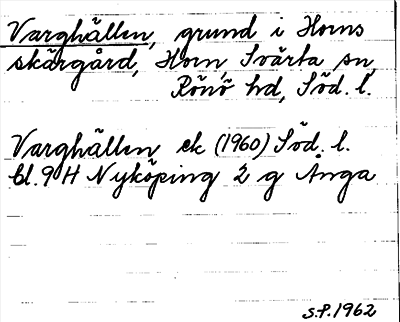 Varghällen, grund i Horns
skärgård, Horn Svärta sn,
Rönö hd, Söd. l.
Varghällen ek (1960) Söd. l.
bl. 9 H Nyköping 2 g Ånga
S.P. 1962